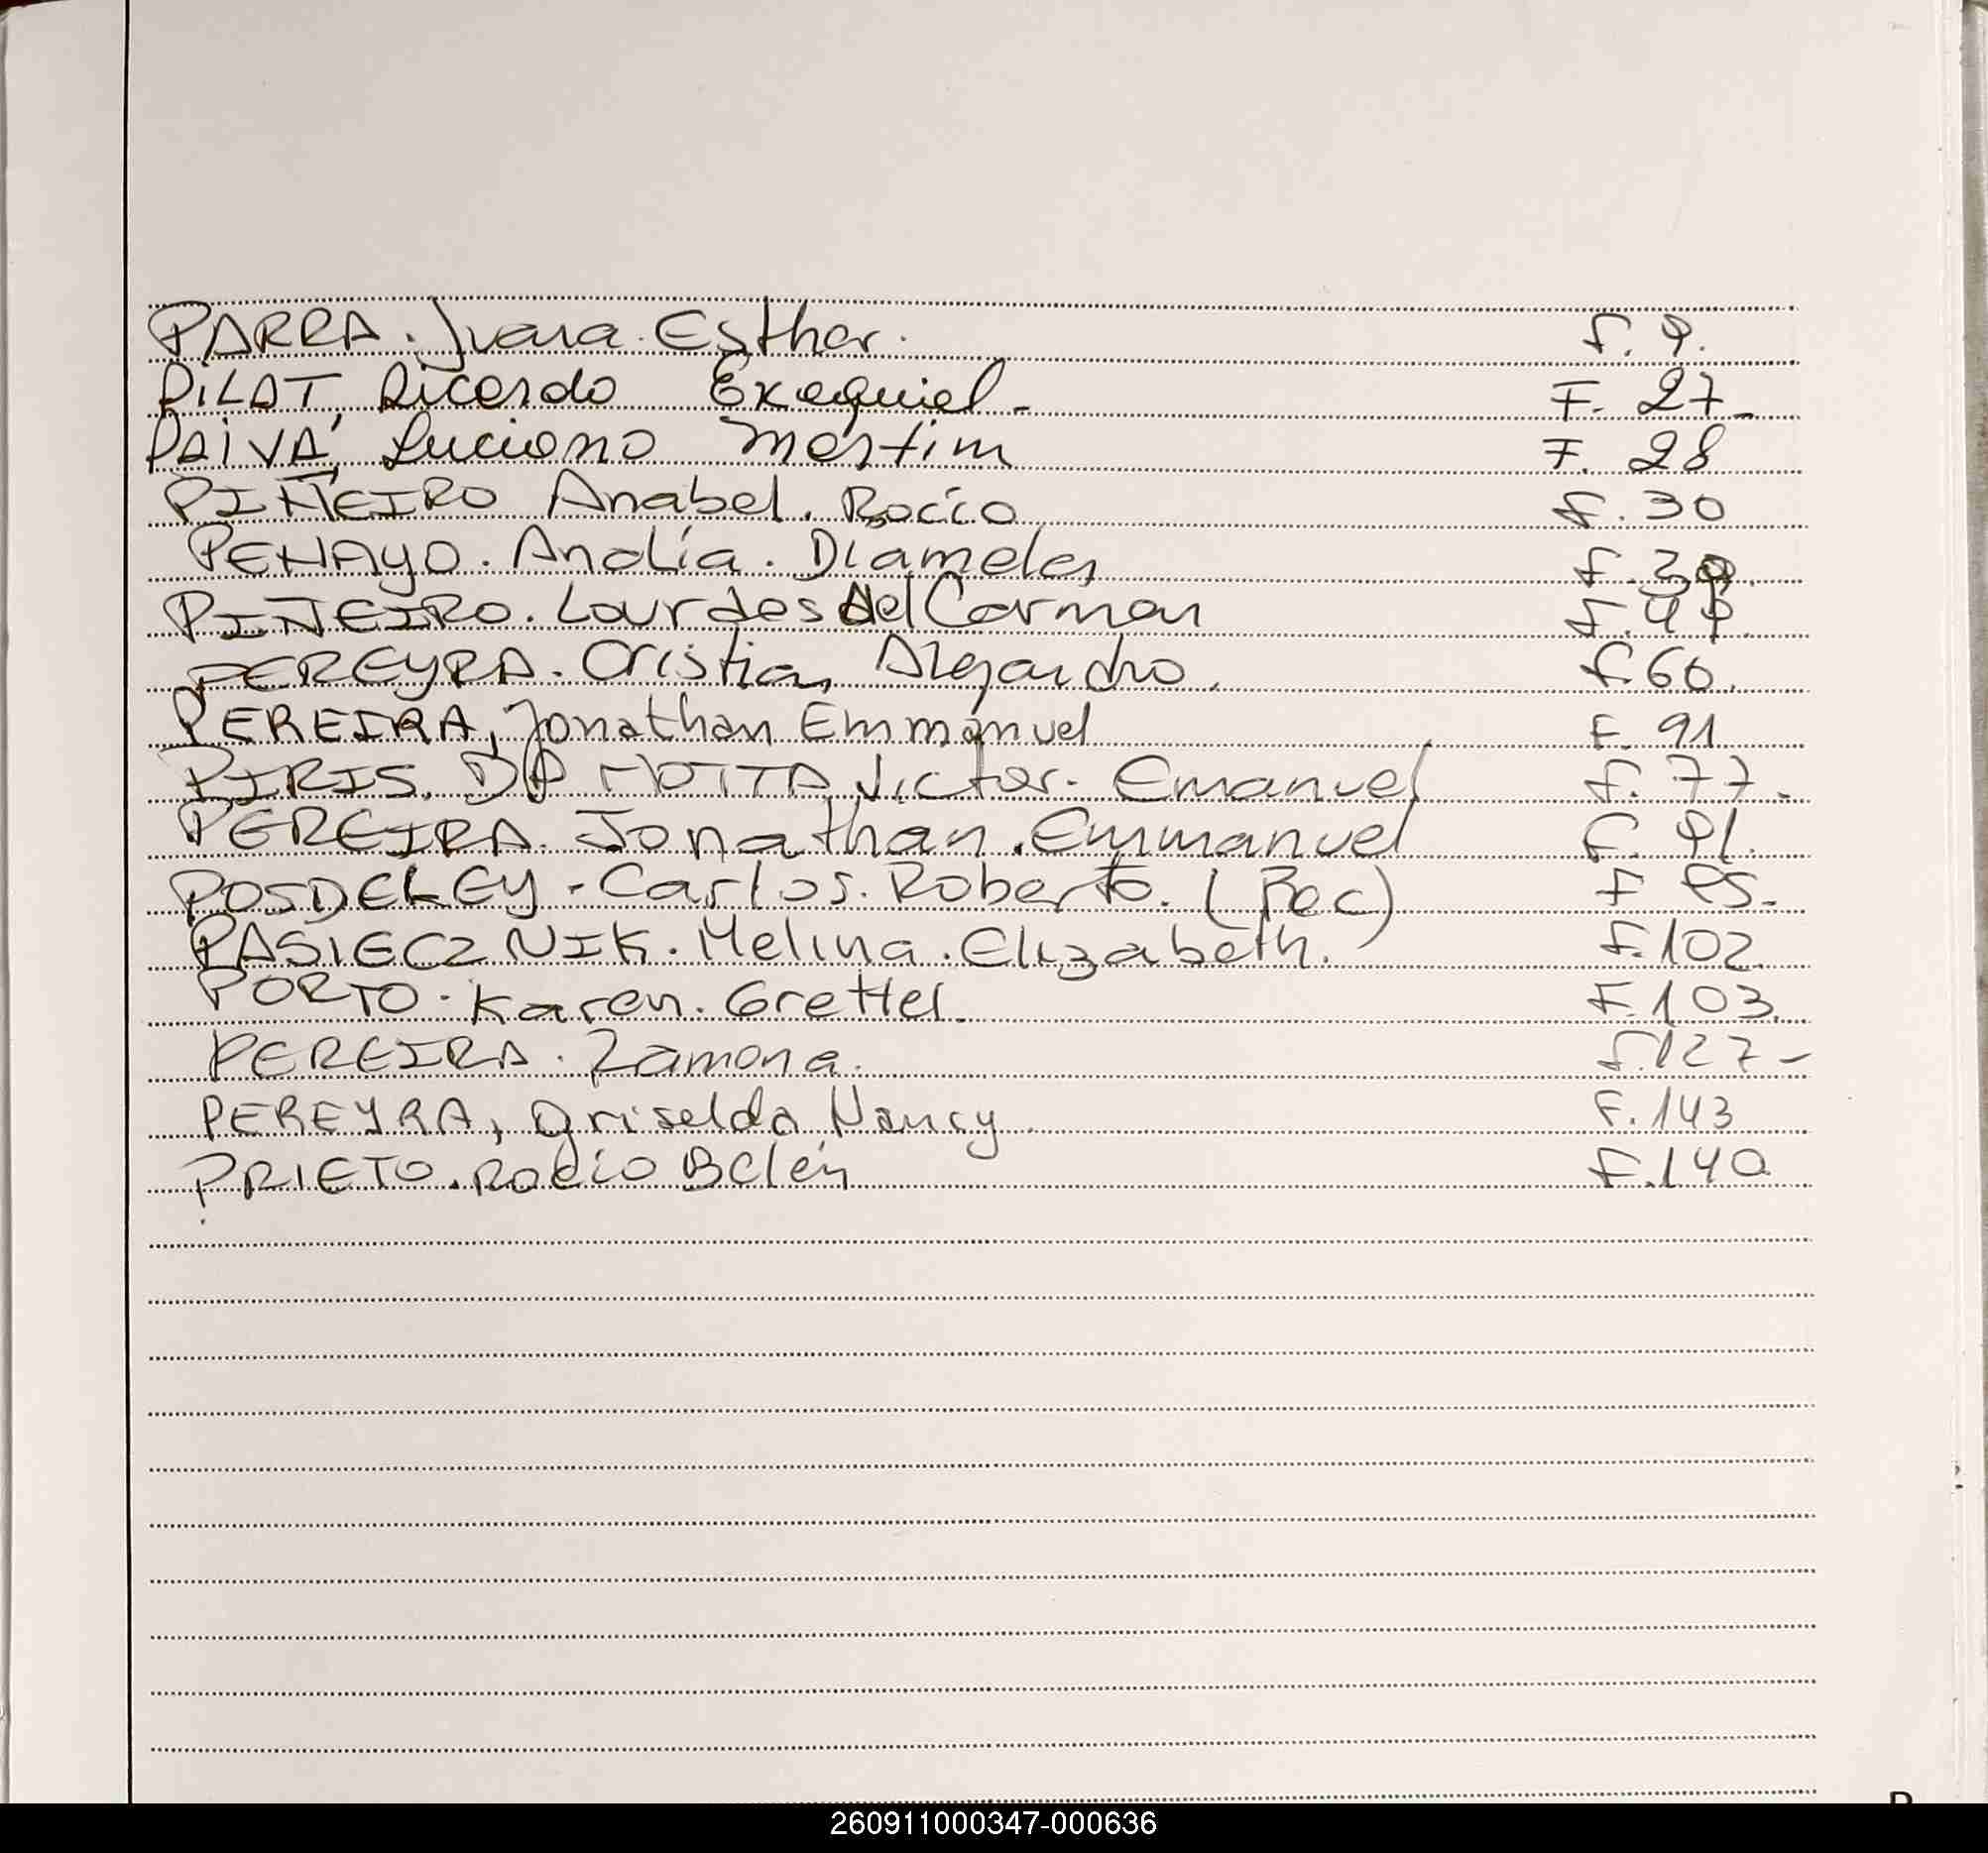 PARRA. Juana. Esther. f. 9.
PILAT, Ricardo Exequiel - F. 27-
PAIVA, Luciano Martim F. 28
PIÑEIRO Anabel. Rocío f. 30
PENAYO. Analía. Diameles f. 39.
PIÑEIRO. Lourdes del Carmen f. 49.
PEREYRA. Cristian Alejandro. f. 60.
PEREIRA, Jonathan Emmanuel F. 91
PIRIS. DA MOTTA Victor. Emanuel f. 77-
PEREIRA. Jonathan. Emmanuel F. 91.
POSDELEY - Carlos. Roberto. (Rec) F 95-
PASIECZNIK. Melina. Elizabeth. f. 102.
PORTO. Karen. Grettel. F. 103.
PEREIRA. Ramona. f. 127-
PEREYRA, Griselda Nancy F. 143
PRIETO. Rocío Belén F. 140
260911000347-000636